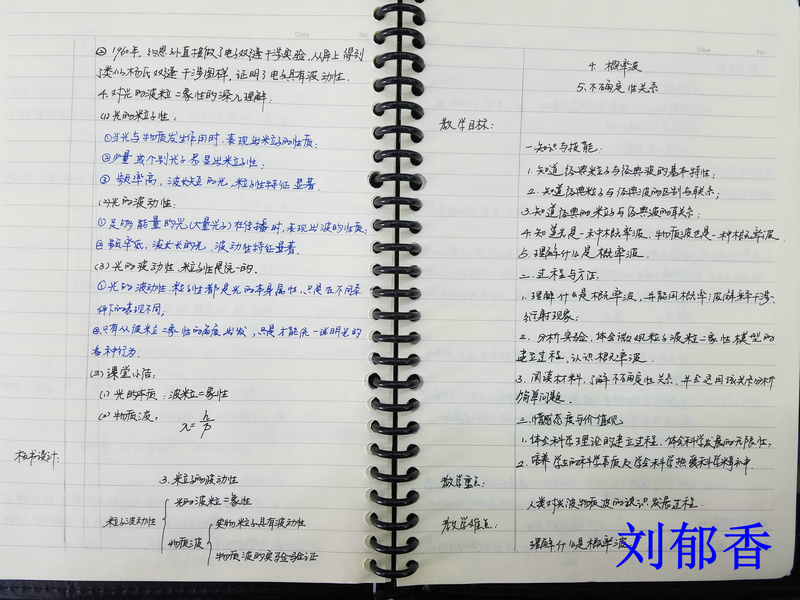 ② 1960年,约恩孙直接做了电子双缝干涉实验,从屏上得到
了类似杨氏双缝干涉图样,证明了电子具有波动性.
4.对光的波粒二象性的深入理解:
(1)光的粒子性:
①当光与物质发生作用时,表现出粒子的性质;
②少量或个别光子易显出粒子性;
③ 频率高,波长短的光,粒子性特征显著.
(2)光的波动性:
①足够能量的光(大量光子)在传播时,表现出波的性质;
②频率低,波长长的光,波动性特征显著.
(3)光的波动性、粒子性是统一的.
①光的波动性、粒子性都是光的本身属性,只是在不同条
件下的表现不同;
②只有从波粒二象性的角度出发,才能统一说明光的
各种行为.
(三)课堂小结:
(1)光的本质:波粒二象性
(2)物质波:
λ=h/p
板书设计:
3.粒子的波动性
粒子波动性
光的波粒二象性
物质波
实物粒子具有波动性
物质波的实验验证
Date No.
4.概率波
5.不确定性关系
教学目标:
一.知识与技能:
1.知道经典粒子与经典波的基本特性;
2.知道经典粒子与经典波的区别与联系;
3.知道经典的粒子与经典波的联系;
4.知道光是一种概率波,物质波也是一种概率波.
5.理解什么是概率波.
二.过程与方法:
1.理解什么是概率波,并能用概率波解释干涉、
衍射现象;
2.分析实验,体会微观粒子波粒二象性模型的
建立过程,认识概率波.
3.阅读材料,了解不确定性关系,并会运用该关系分析
简单问题.
三.情感态度与价值观
1.体会科学理论的建立过程,体会科学发展的无限性;
2.培养学生的科学素质及学会科学热爱科学精神
教学重点:
人类对光波物质波的认识发展过程.
教学难点:
理解什么是概率波
刘郁香